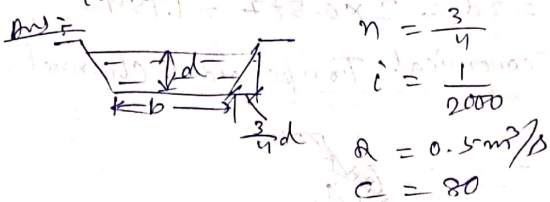 Ans =
d
b
3/4 d
n = 3/4
i = 1/2000
Q = 0.5 m³/s
C = 80